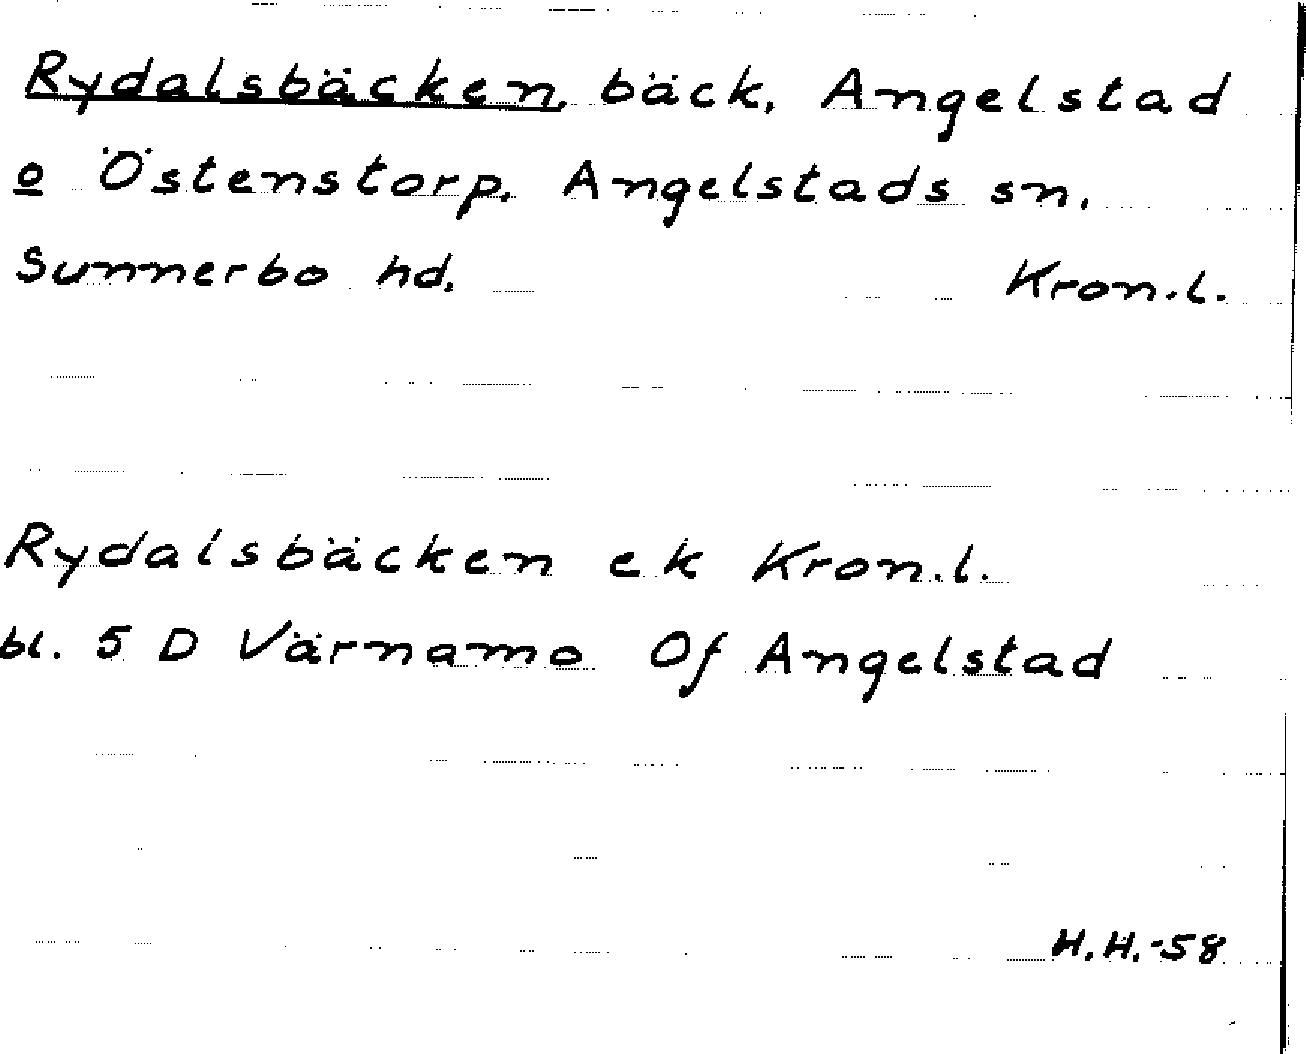 Rydalsbäcken, bäck, Angelstad
o Östenstorp, Angelstads sn,
Sunnerbo hd. Kron.l.
Rydalsbäcken ek Kron.l.
bl. 5 D Värnamo Of Angelstad
H.H.-58